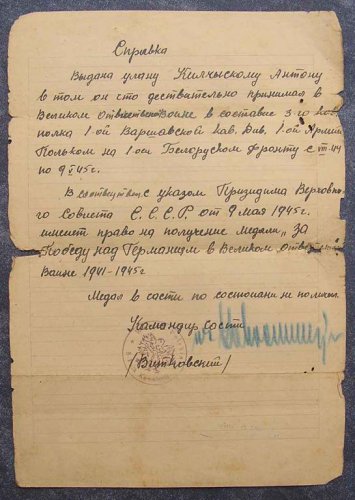 Справка
Выдана улану Килчыскому Антону
в том он что дествительно принимал в
Великом Отвествено Воине в составие 3-го кав.
полка 1-ой Варшавской кав. Див. 1-ой Армии
Польком на 1-ом Белоруском Фронту с VIII 44
по 9 V 45 г.
В соответствии с указом Президима Верховно-
го Совиета С.С.С.Р. от 9 мая 1945 г.
имеиет право на получение Медали „За
Победу над Германием в Великом Отвествен
Воине 1941-1945 г
Медал в части по состоиани не получил.
Командир Части
/Витковский/